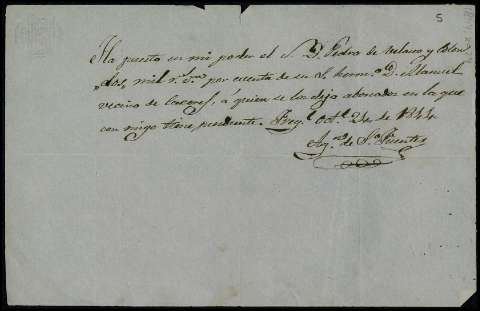 5
Ha puesto en mi poder el S. D. Pedro de Velasco y
dos mil r.s v.n por cuenta de su S. herm.o D. Manuel
vecino de Caceres, á quien se los dejo abonados en la que
con migo tiene pendiente. Oct.e 24 de 1844
Ag.n de S.a Fuentes